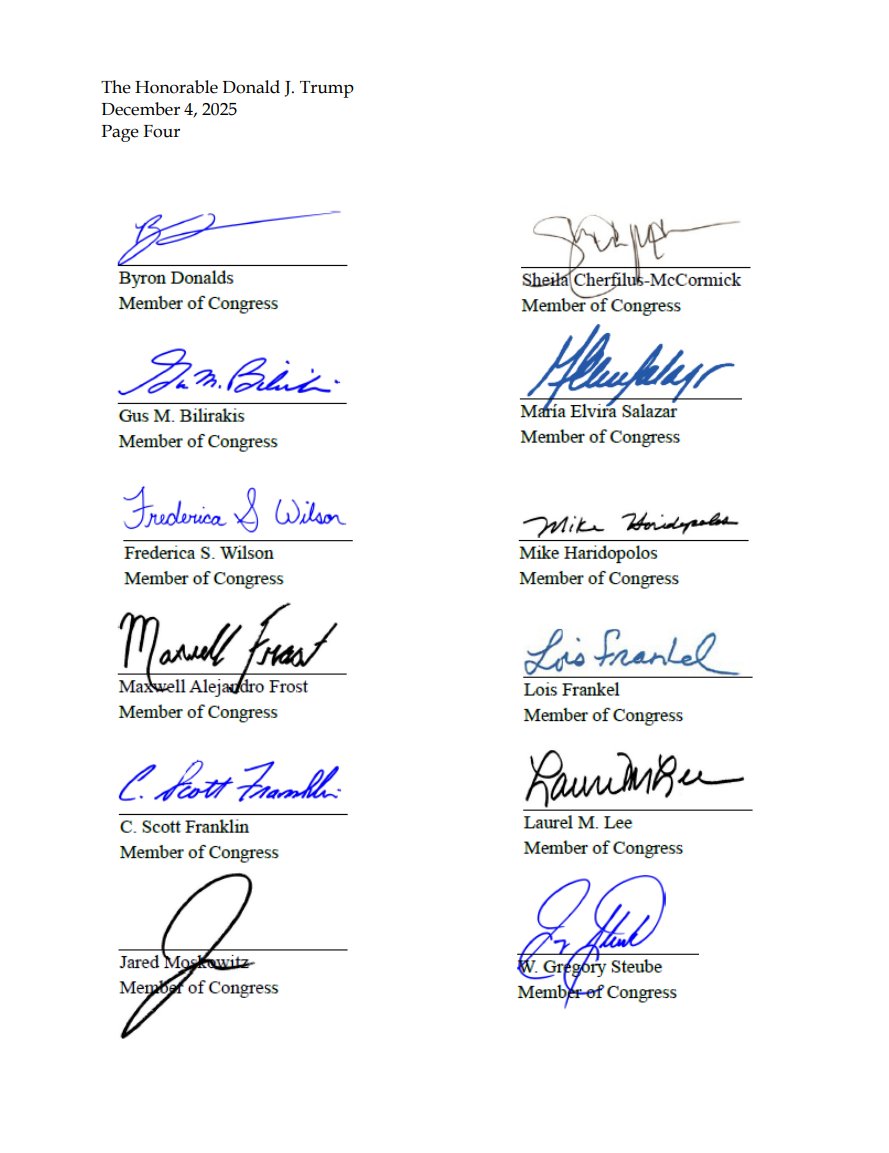 The Honorable Donald J. Trump
December 4, 2025
Page Four
Byron Donalds
Member of Congress
Sheila Cherfilus-McCormick
Member of Congress
Gus M. Bilirakis
Gus M. Bilirakis
Member of Congress
María Elvira Salazar
Member of Congress
Frederica S Wilson
Frederica S. Wilson
Member of Congress
Mike Haridopolos
Mike Haridopolos
Member of Congress
Maxwell Frost
Maxwell Alejandro Frost
Member of Congress
Lois Frankel
Lois Frankel
Member of Congress
C. Scott Franklin
C. Scott Franklin
Member of Congress
Laurel M Lee
Laurel M. Lee
Member of Congress
Jared Moskowitz
Member of Congress
W. Gregory Steube
Member of Congress